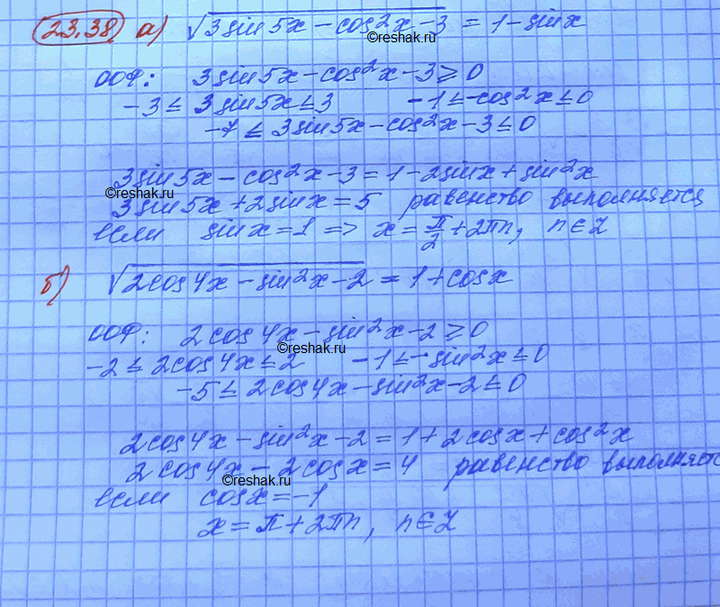 23.38 а) √(3sin5x - cos²x - 3) = 1 - sinx
©reshak.ru
ООФ: 3sin5x - cos²x - 3 ≥ 0
-3 ≤ 3sin5x ≤ 3 -1 ≤ -cos²x ≤ 0
-7 ≤ 3sin5x - cos²x - 3 ≤ 0
3sin5x - cos²x - 3 = 1 - 2sinx + sin²x
©reshak.ru
3sin5x + 2sinx = 5 равенство выполняется
если sinx = 1 => x = π/2 + 2πn, n∈Z
б) √(2cos4x - sin²x - 2) = 1 + cosx
ООФ: 2cos4x - sin²x - 2 ≥ 0
©reshak.ru
-2 ≤ 2cos4x ≤ 2 -1 ≤ -sin²x ≤ 0
-5 ≤ 2cos4x - sin²x - 2 ≤ 0
2cos4x - sin²x - 2 = 1 + 2cosx + cos²x
2cos4x - 2cosx = 4 равенство выполняетс
©reshak.ru
если cosx = -1
x = π + 2πn, n∈Z